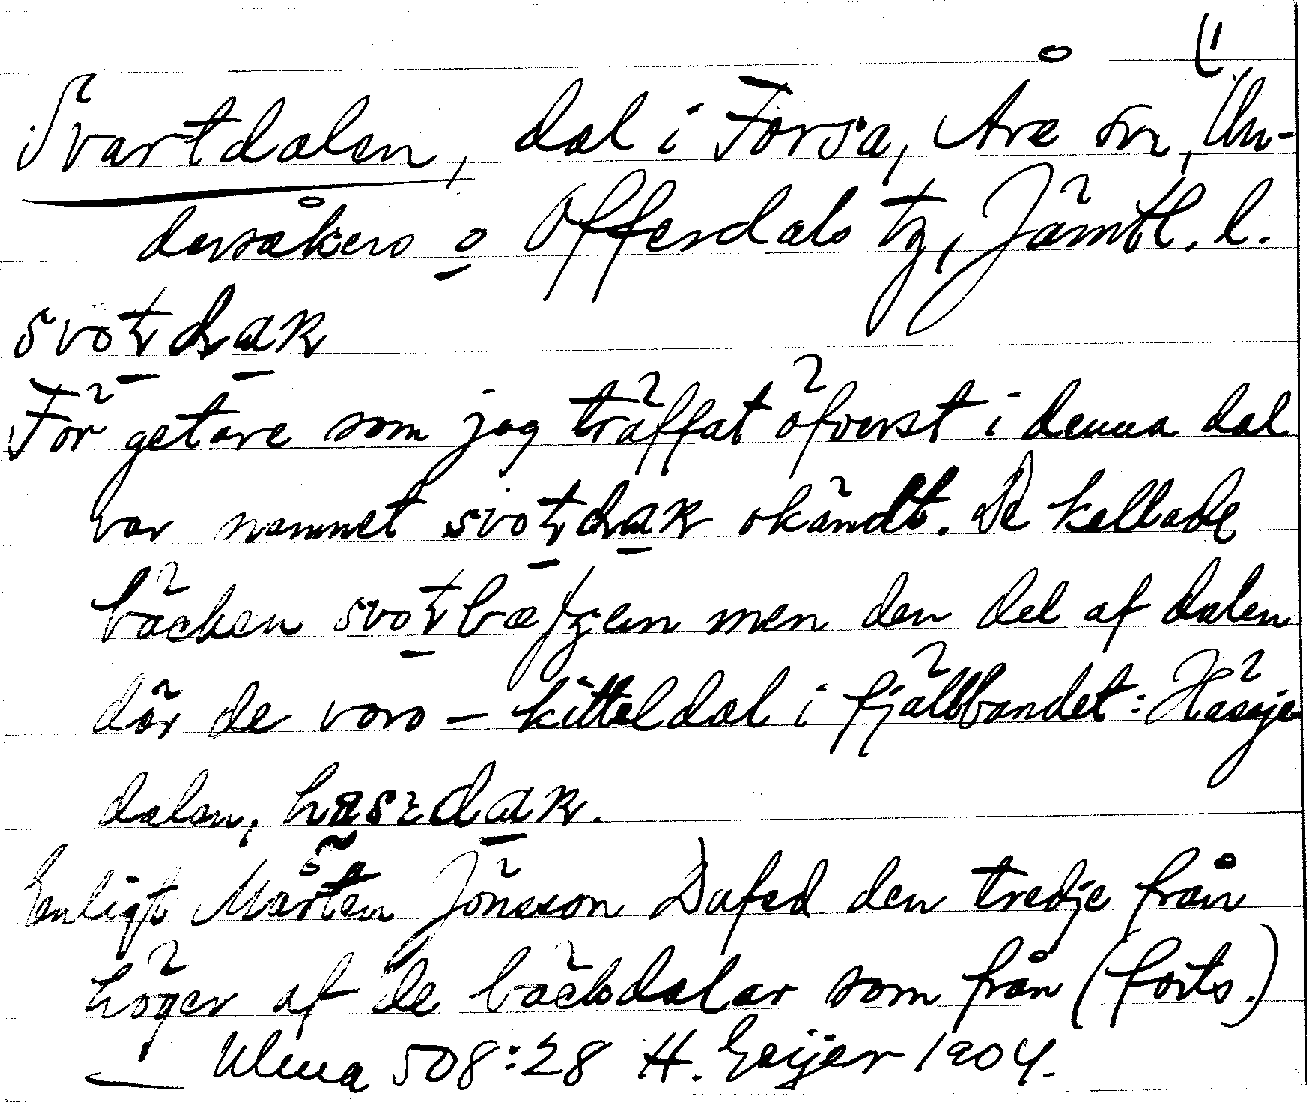 Svartdalen, dal i Forsa, Åre sn, Un-
dersåkers o Offerdals tg, Jämtl. l.
svotdaɴ
För getare som jag träffat öfverst i denna dal
var namnet okändt. De kallade
bäcken men den del af dalen
där de voro – kitteldal i fjällbandet: Hässje
dalen,
Enligt Mårten Jönsson Dufed den tredje från
höger af de bäckdalar som från (forts.)
Ulma 508:28 H. Geijer 1904.